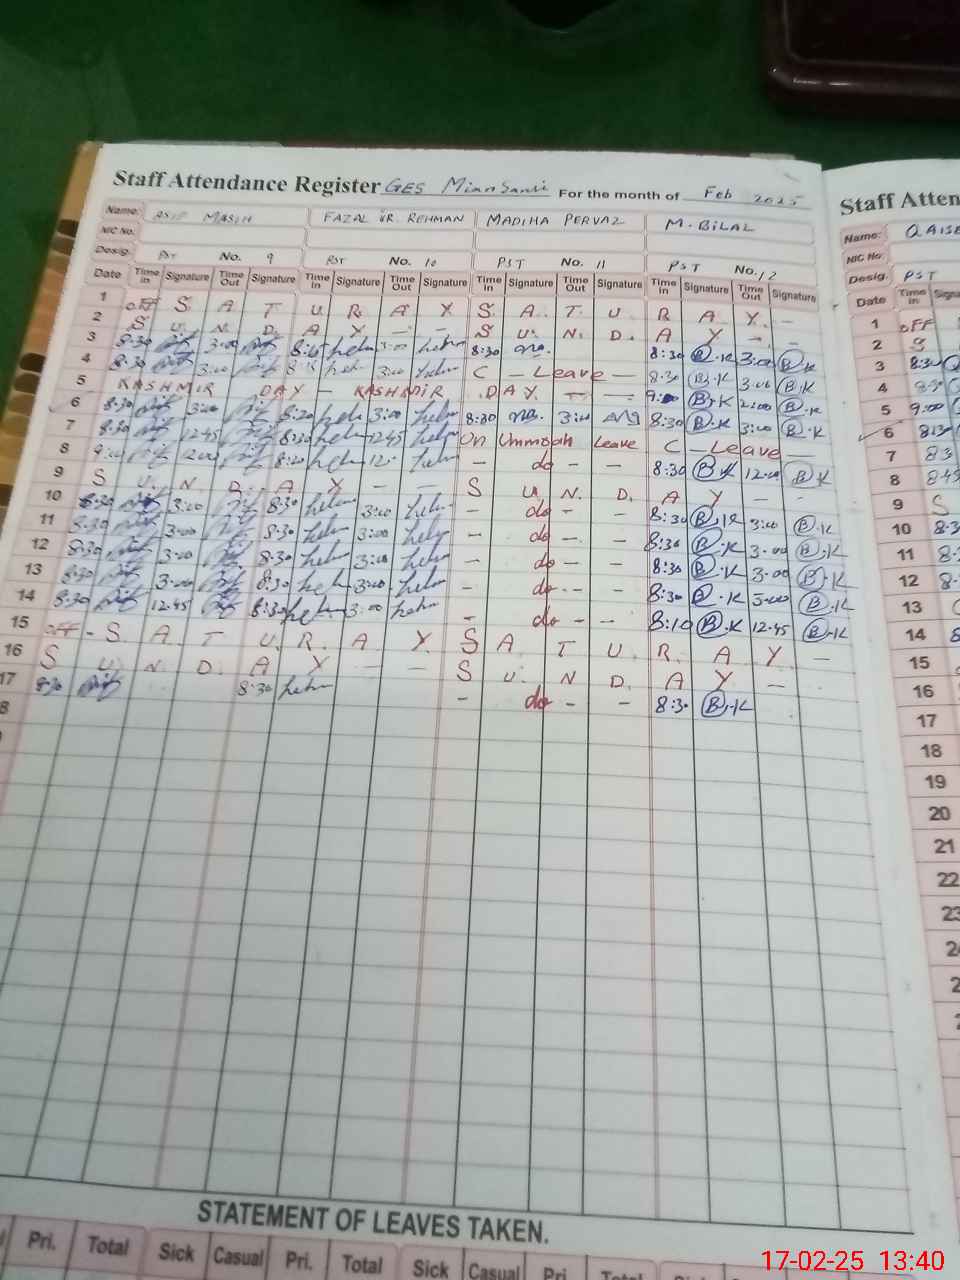 Staff Attendance Register GES Mian Sansi For the month of Feb 2025
Name: ASIF MASIH FAZAL UR REHMAN MADIHA PERVAZ M. BILAL
NIC No.
Desig. PST No. 9 PST No. 10 PST No. 11 PST No. 12
Date Time In Signature Time Out Signature Time In Signature Time Out Signature Time In Signature Time Out Signature Time In Signature Time Out Signature
1 OFF S A T U R A Y S A T U R A Y -
2 S U N D A Y - - S U N D A Y - -
3 8:30 3:00 8:45 3:00 8:30 8:30 B.K 3:00 B.K
4 8:30 3:00 3:00 C - Leave - 8:30 B.K 3:00 B.K
5 KASHMIR DAY - KASHMIR DAY - - 9:00 B.K 2:00 B.K
6 8:30 3:00 8:20 3:00 8:30 3:00 8:30 B.K 3:00 B.K
7 8:30 12:45 8:30 12:45 On Ummrah Leave C - Leave -
8 9:00 12:00 8:20 - do - - 8:30 B.K 12:00 B.K
9 S U N D A Y - - S U N D A Y - -
10 8:30 3:00 8:30 3:00 - do - - 8:30 B.K 3:00 B.K
11 8:30 3:00 8:30 3:00 - do - - 8:30 B.K 3:00 B.K
12 8:30 3:00 8:30 3:00 - do - - 8:30 B.K 3:00 B.K
13 8:30 3:00 8:30 3:00 - do - - 8:30 B.K 3:00 B.K
14 8:30 12:45 8:30 3:00 - do - - 8:10 B.K 12:45 B.K
15 OFF - S A T U R A Y S A T U R A Y -
16 S U N D A Y - - S U N D A Y -
17 8:30 8:30 - do - - 8:30 B.K
8
STATEMENT OF LEAVES TAKEN.
Pri. Total Sick Casual Pri. Total Sick Casual Pri. Total
Staff Atten
Name: QAISE
NIC No.
Desig. PST
Date Time In Signa
1 OFF
2 S
3 8:30
4 8:30
5 9:00
6 8:30
7 83
8 8:45
9 S
10 8:3
11 8:
12 8
13
14 8
15
16
17
18
19
20
21
22
23
2
2
2
17-02-25 13:40